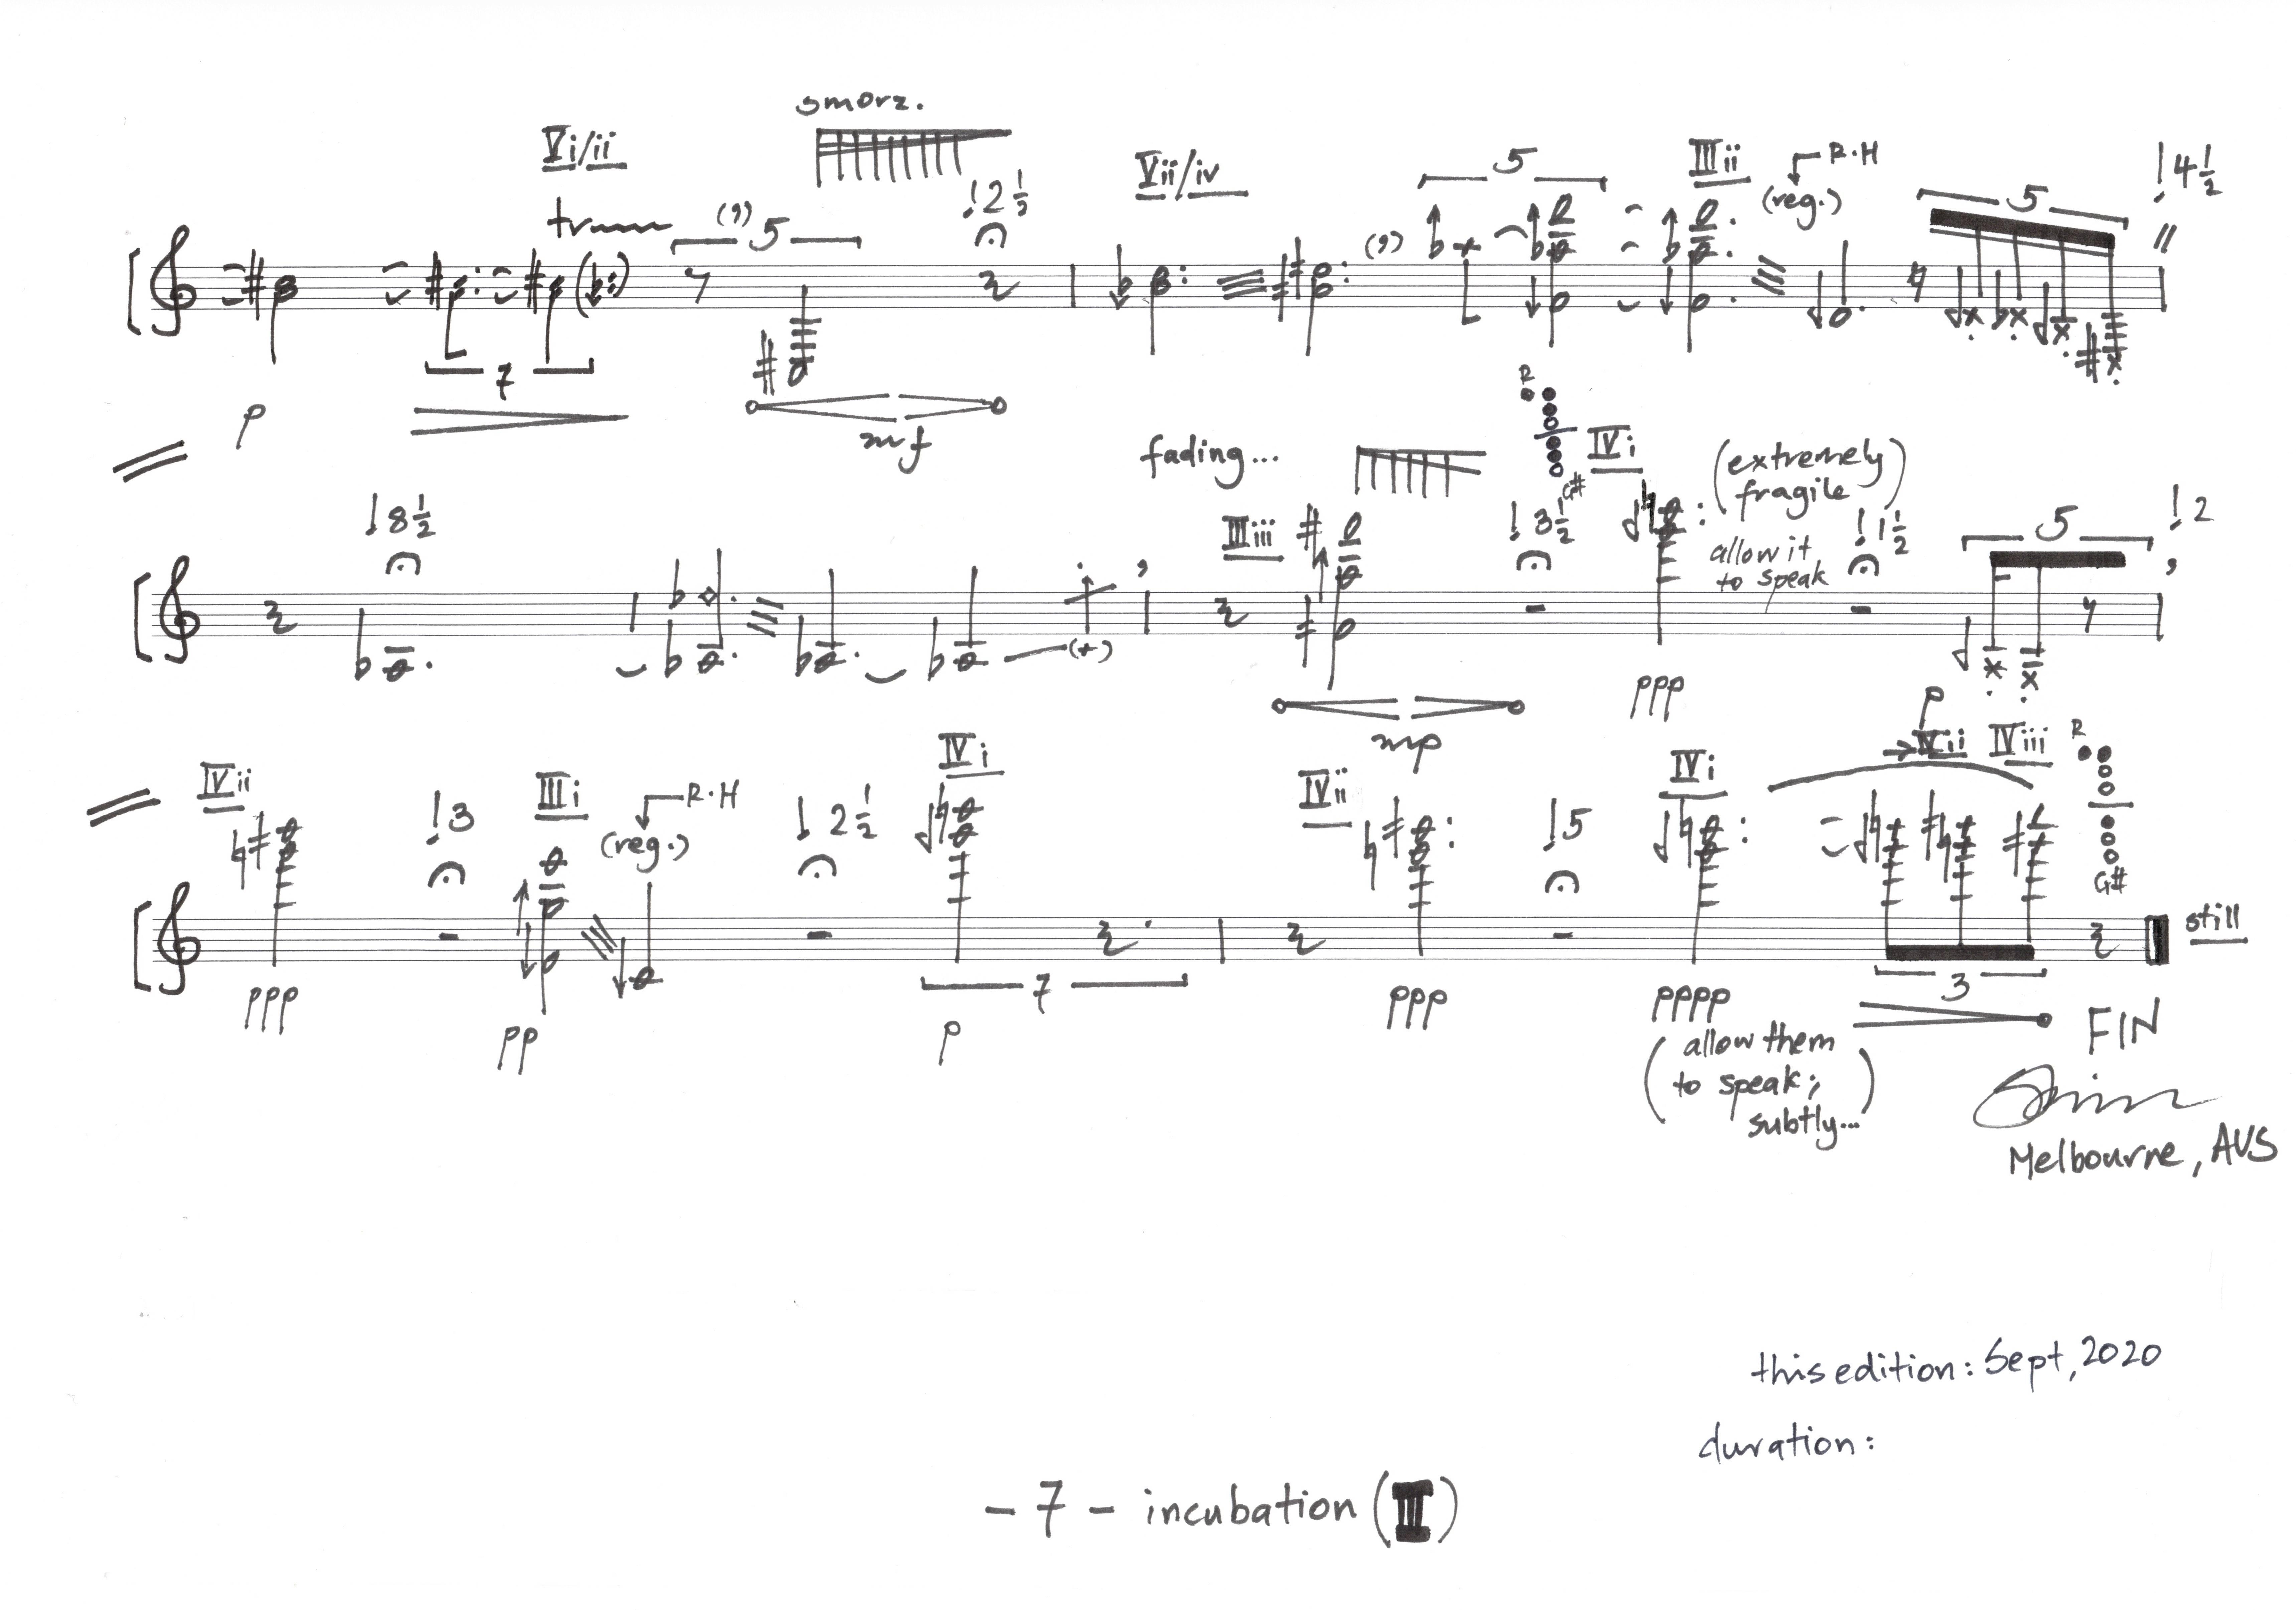 smorz.
Vi/ii
tr
(,) 5
2 1/2
Vii/iv
5
IIIii
R.H
(reg.)
5
4 1/2
7
p
mf
fading...
R
G#
IVi
(extremely
fragile)
8 1/2
IIIiii
3 1/2
allow it
to speak
1 1/2
5
2
mp
ppp
p
IVii
3
IIIi
R.H
(reg.)
2 1/2
IVi
IVii
5
IVi
→IVii IViii
R
G#
still
7
3
ppp
pp
p
ppp
pppp
FIN
(allow them
to speak;
subtly...)
Melbourne, AUS
this edition: Sept, 2020
duration:
- 7 - incubation (III)